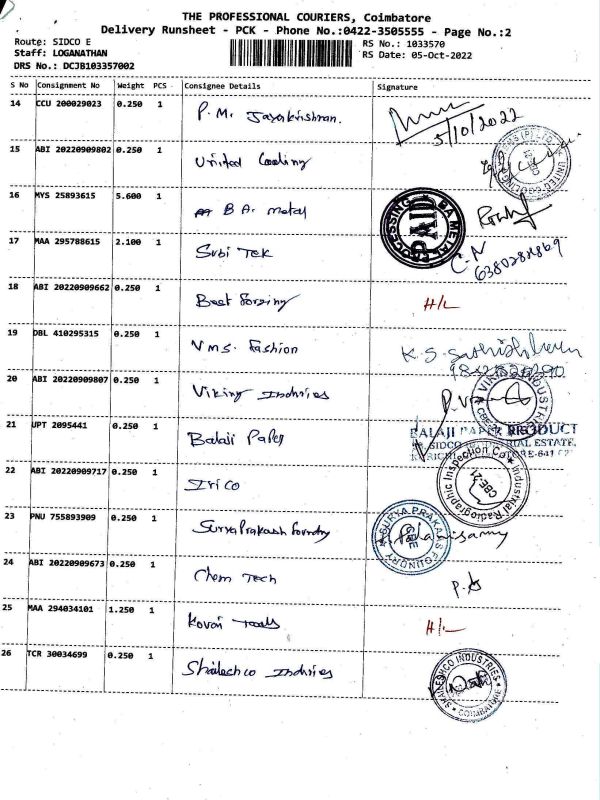 THE PROFESSIONAL COURIERS, Coimbatore
Delivery Runsheet - PCK - Phone No.:0422-3505555 - Page No.:2
Route: SIDCO E
Staff: LOGANATHAN
DRS No.: DCJB103357002
RS No.: 1033570
RS Date: 05-Oct-2022
S No Consignment No Weight PCS Consignee Details Signature
14 CCU 200029023 0.250 1 P.M. Jayakrishnan. 5/10/2022
15 ABI 20220909802 0.250 1 United Cooling
16 MYS 25893615 5.600 1 B.A. metal
PROCESSING BA METAL PAID
17 MAA 295788615 2.100 1 Subi Tek C.N
18 ABI 20220909662 0.250 1 Best forging H/L
19 DBL 410295315 0.250 1 V.M.S. Fashion K.S.
20 ABI 20220909807 0.250 1 Viking Indhries
VIKING INDUSTRI
21 UPT 2095441 0.250 1 Balaji Paper
BALAJI PAPER PRODUCT
SIDCO INDUSTRIAL ESTATE,
22 ABI 20220909717 0.250 1 Irico
Industrial Radiographic Inspection Co CBE-21
23 PNU 755893909 0.250 1 Surya Prakash foundry
SURYA PRAKASH FOUNDRY CBE
24 ABI 20220909673 0.250 1 Chem Tech
25 MAA 294034101 1.250 1 Kovai Tools H/L
26 TCR 30034699 0.250 1 Shaileshco Indhries
SHAILESHCO INDUSTRIES COIMBATORE